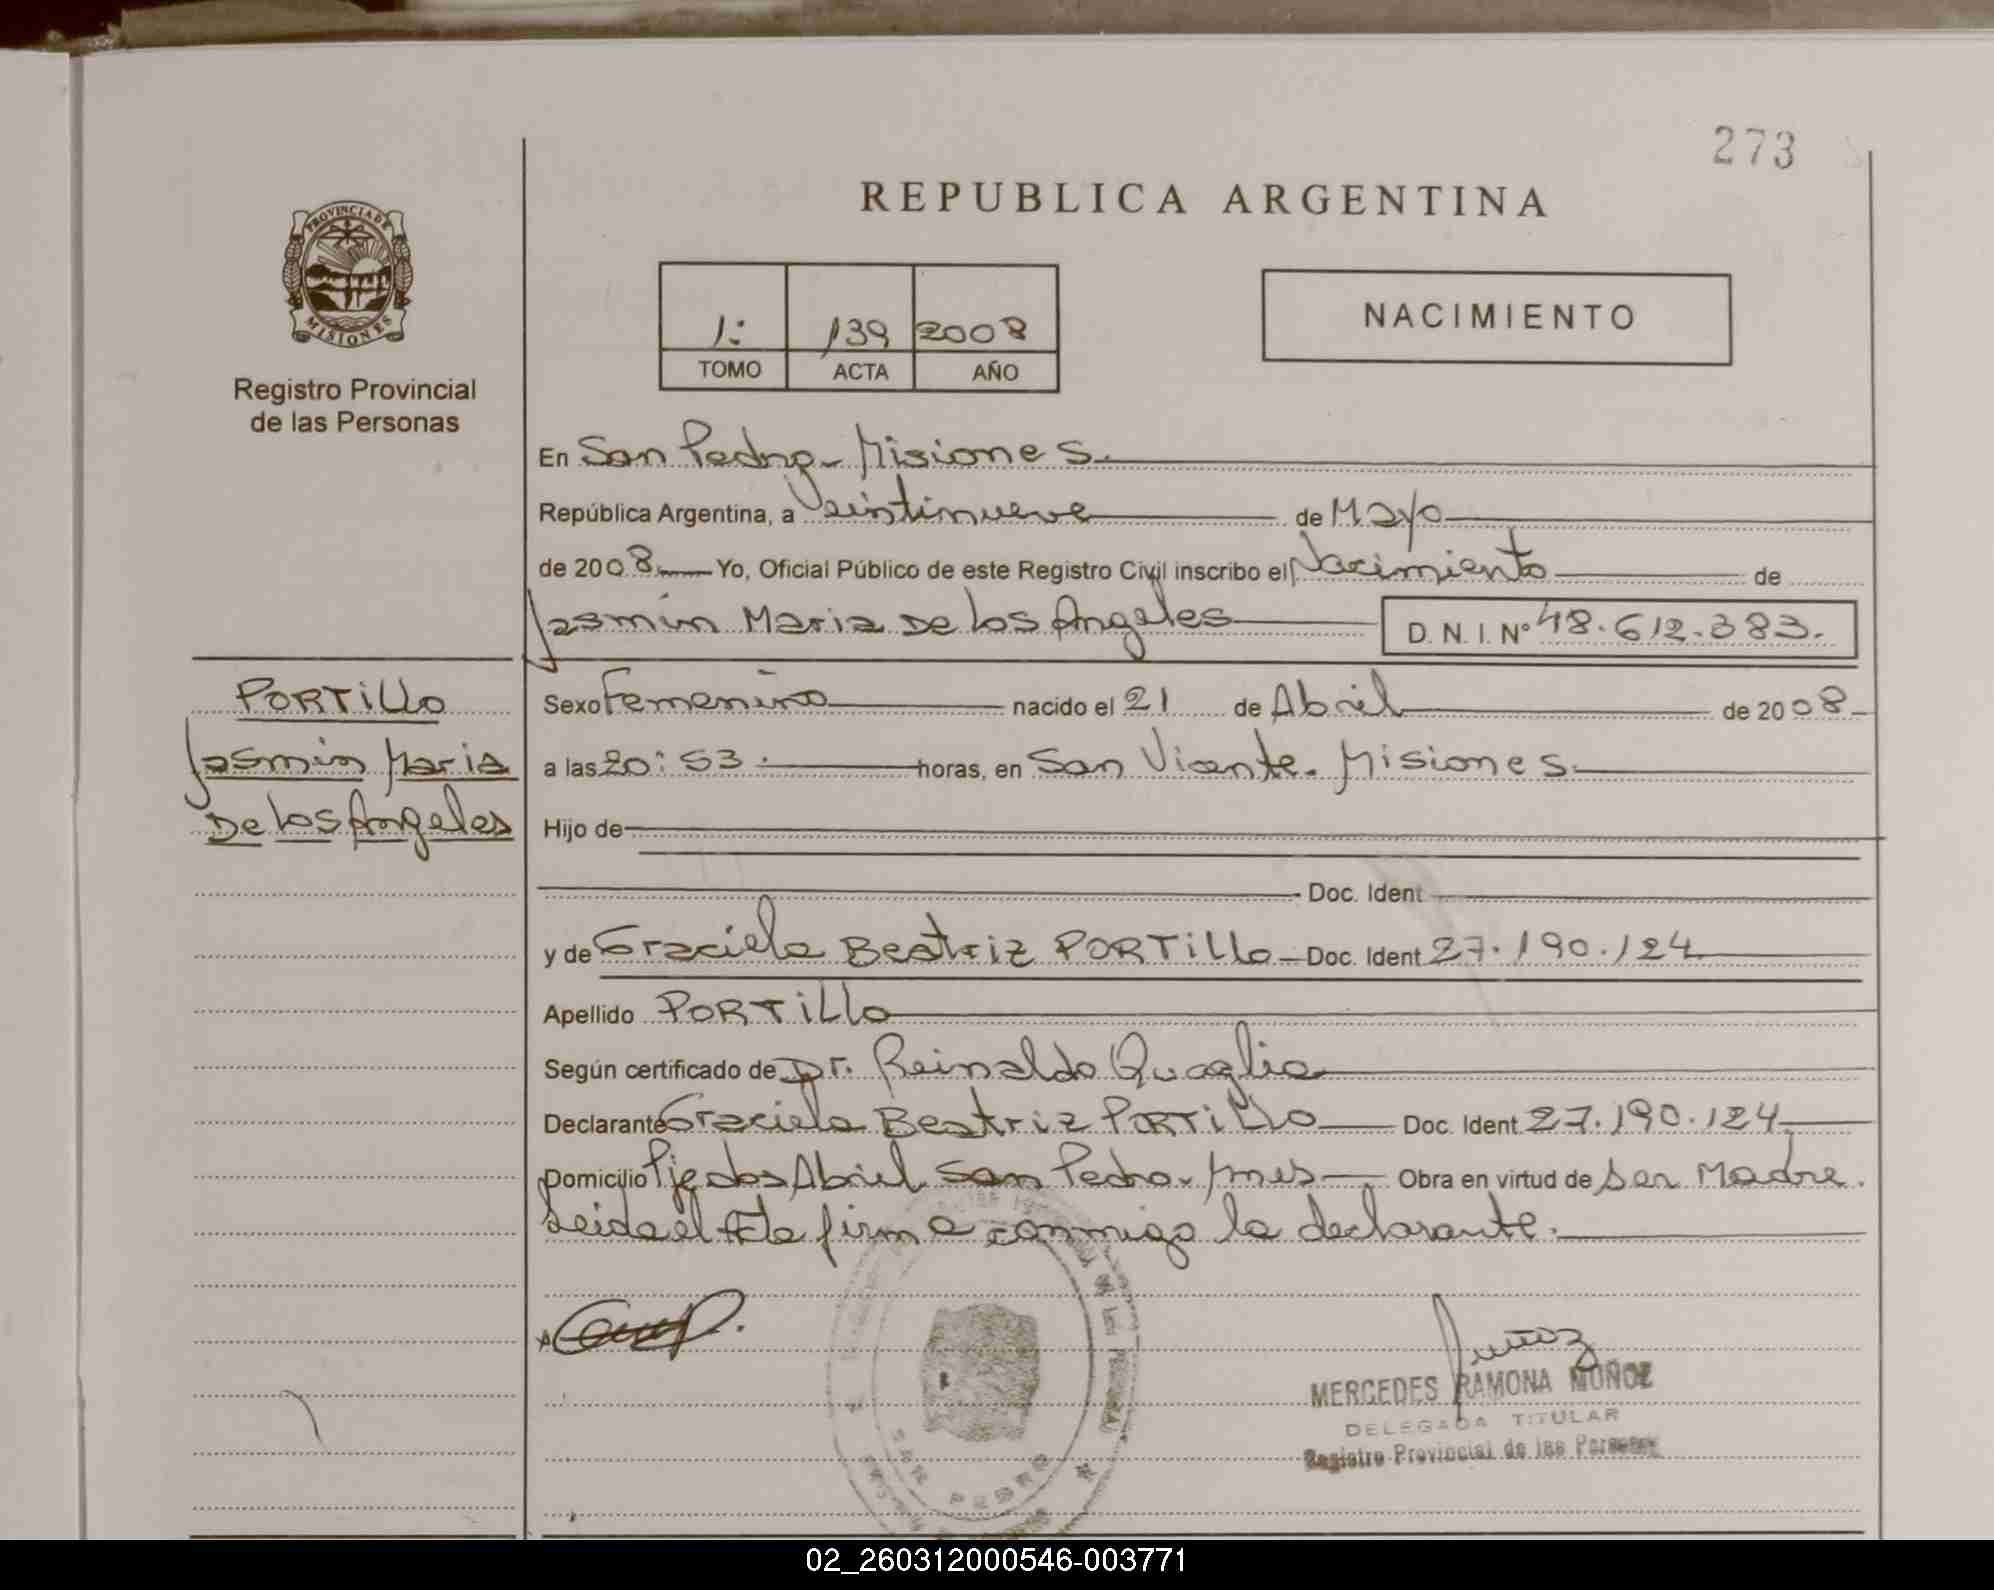 273
REPUBLICA ARGENTINA
PROVINCIA DE
MISIONES
Registro Provincial
de las Personas
1: 139 2008
TOMO ACTA AÑO
NACIMIENTO
En San Pedro - Misiones.
República Argentina, a Veintinueve de Mayo
de 2008 Yo, Oficial Público de este Registro Civil inscribo el Nacimiento de
Jasmin Maria De Los Angeles D.N.I. Nº 48.612.383.
PORTILLO
Jasmin Maria
De Los Angeles
Sexo Femenino nacido el 21 de Abril de 2008
a las 20:53. horas, en San Vicente. Misiones
Hijo de
Doc. Ident
y de Graciela Beatriz PORTILLO Doc. Ident 27.190.124
Apellido PORTILLO
Según certificado de Dr. Reinaldo Quaglia
Declarante Graciela Beatriz PORTILLO Doc. Ident 27.190.124
Domicilio Pje dos Abriel San Pedro - Mnes Obra en virtud de ser Madre.
Leida el Acta firma conmigo la declarante.
Muñoz
MERCEDES RAMONA MUÑOZ
DELEGADA TITULAR
Registro Provincial de las Personas
SAN PEDRO
02_260312000546-003771